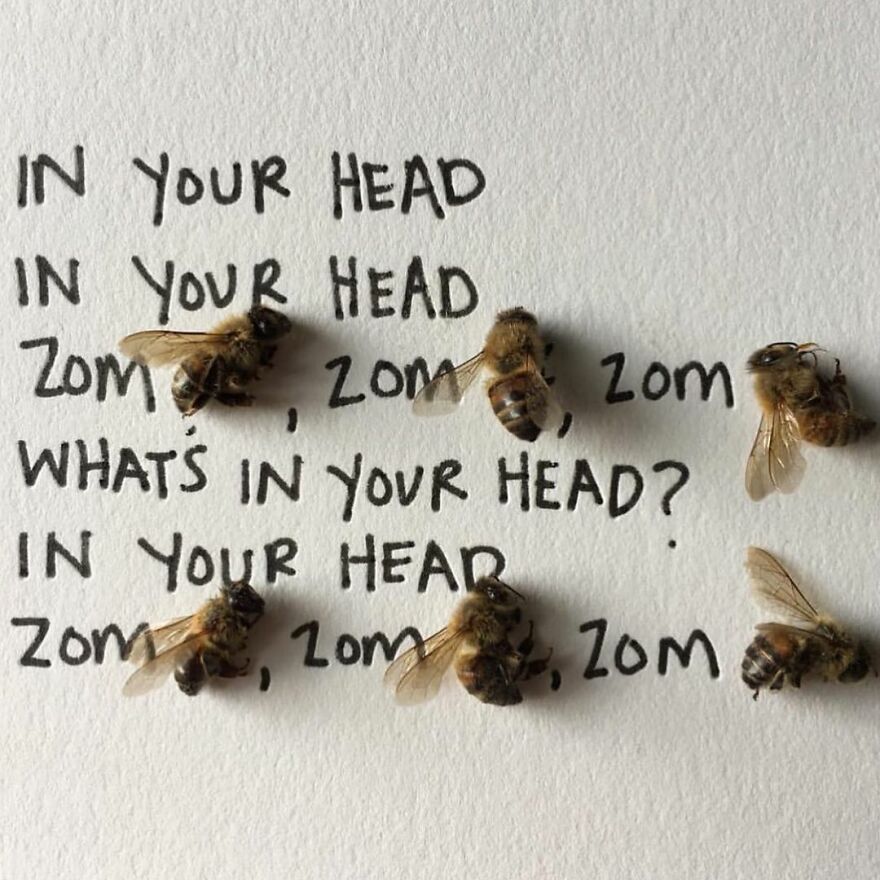 IN YOUR HEAD
IN YOUR HEAD
Zom , zom , zom
WHAT'S IN YOUR HEAD?
IN YOUR HEAD
Zom , zom , zom